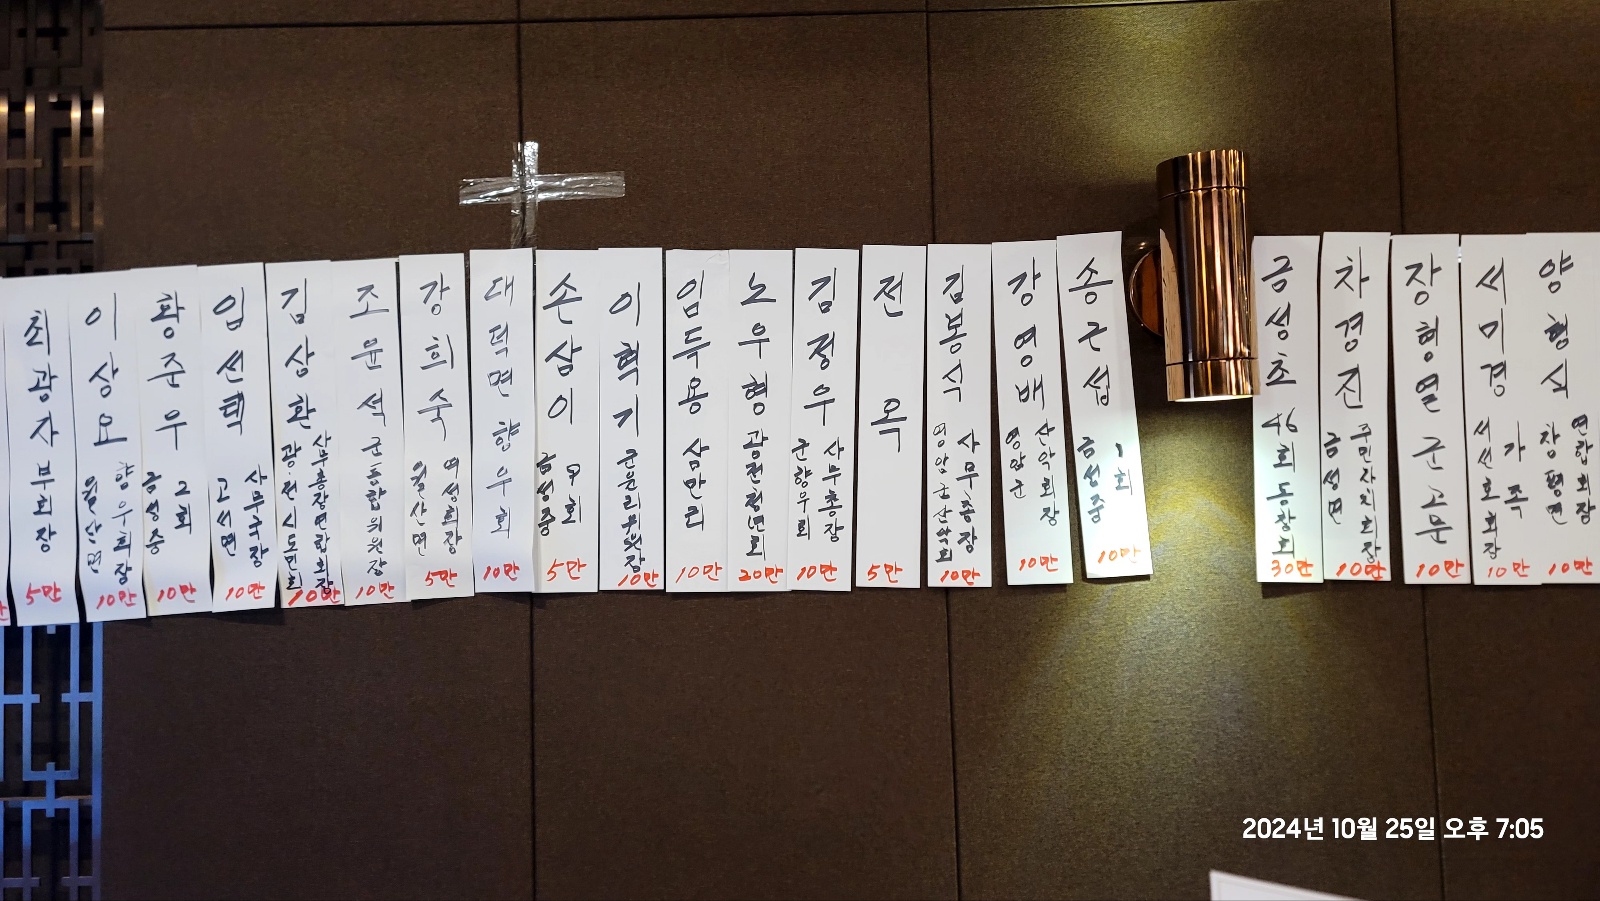 최광자 부회장
5만
이상요
월산면 향우회장
10만
황준우
금성중 2회
10만
임선택
고서면 사무국장
10만
김상환
광·전 시도민회 사무총장연합회장
10만
조윤석
군통합위원장
10만
강희숙
월산면 여성회장
5만
대덕면 향우회
10만
손삼이
금성중 9회
5만
이혁기
10만
임득용
삼만리
10만
노우형
광전청년회
20만
김정우
군향우회 사무총장
10만
전옥
5만
김봉식
영암군산악회 사무총장
10만
강영배
영암군 산악회장
10만
송근섭
금성중 1회
10만
금성초 46회 동창회
30만
차경진
금성면 주민자치회장
10만
장형열 군고문
10만
서미경
서선호회장 가족
10만
양형식
창평면 연합회장
10만
2024년 10월 25일 오후 7:05